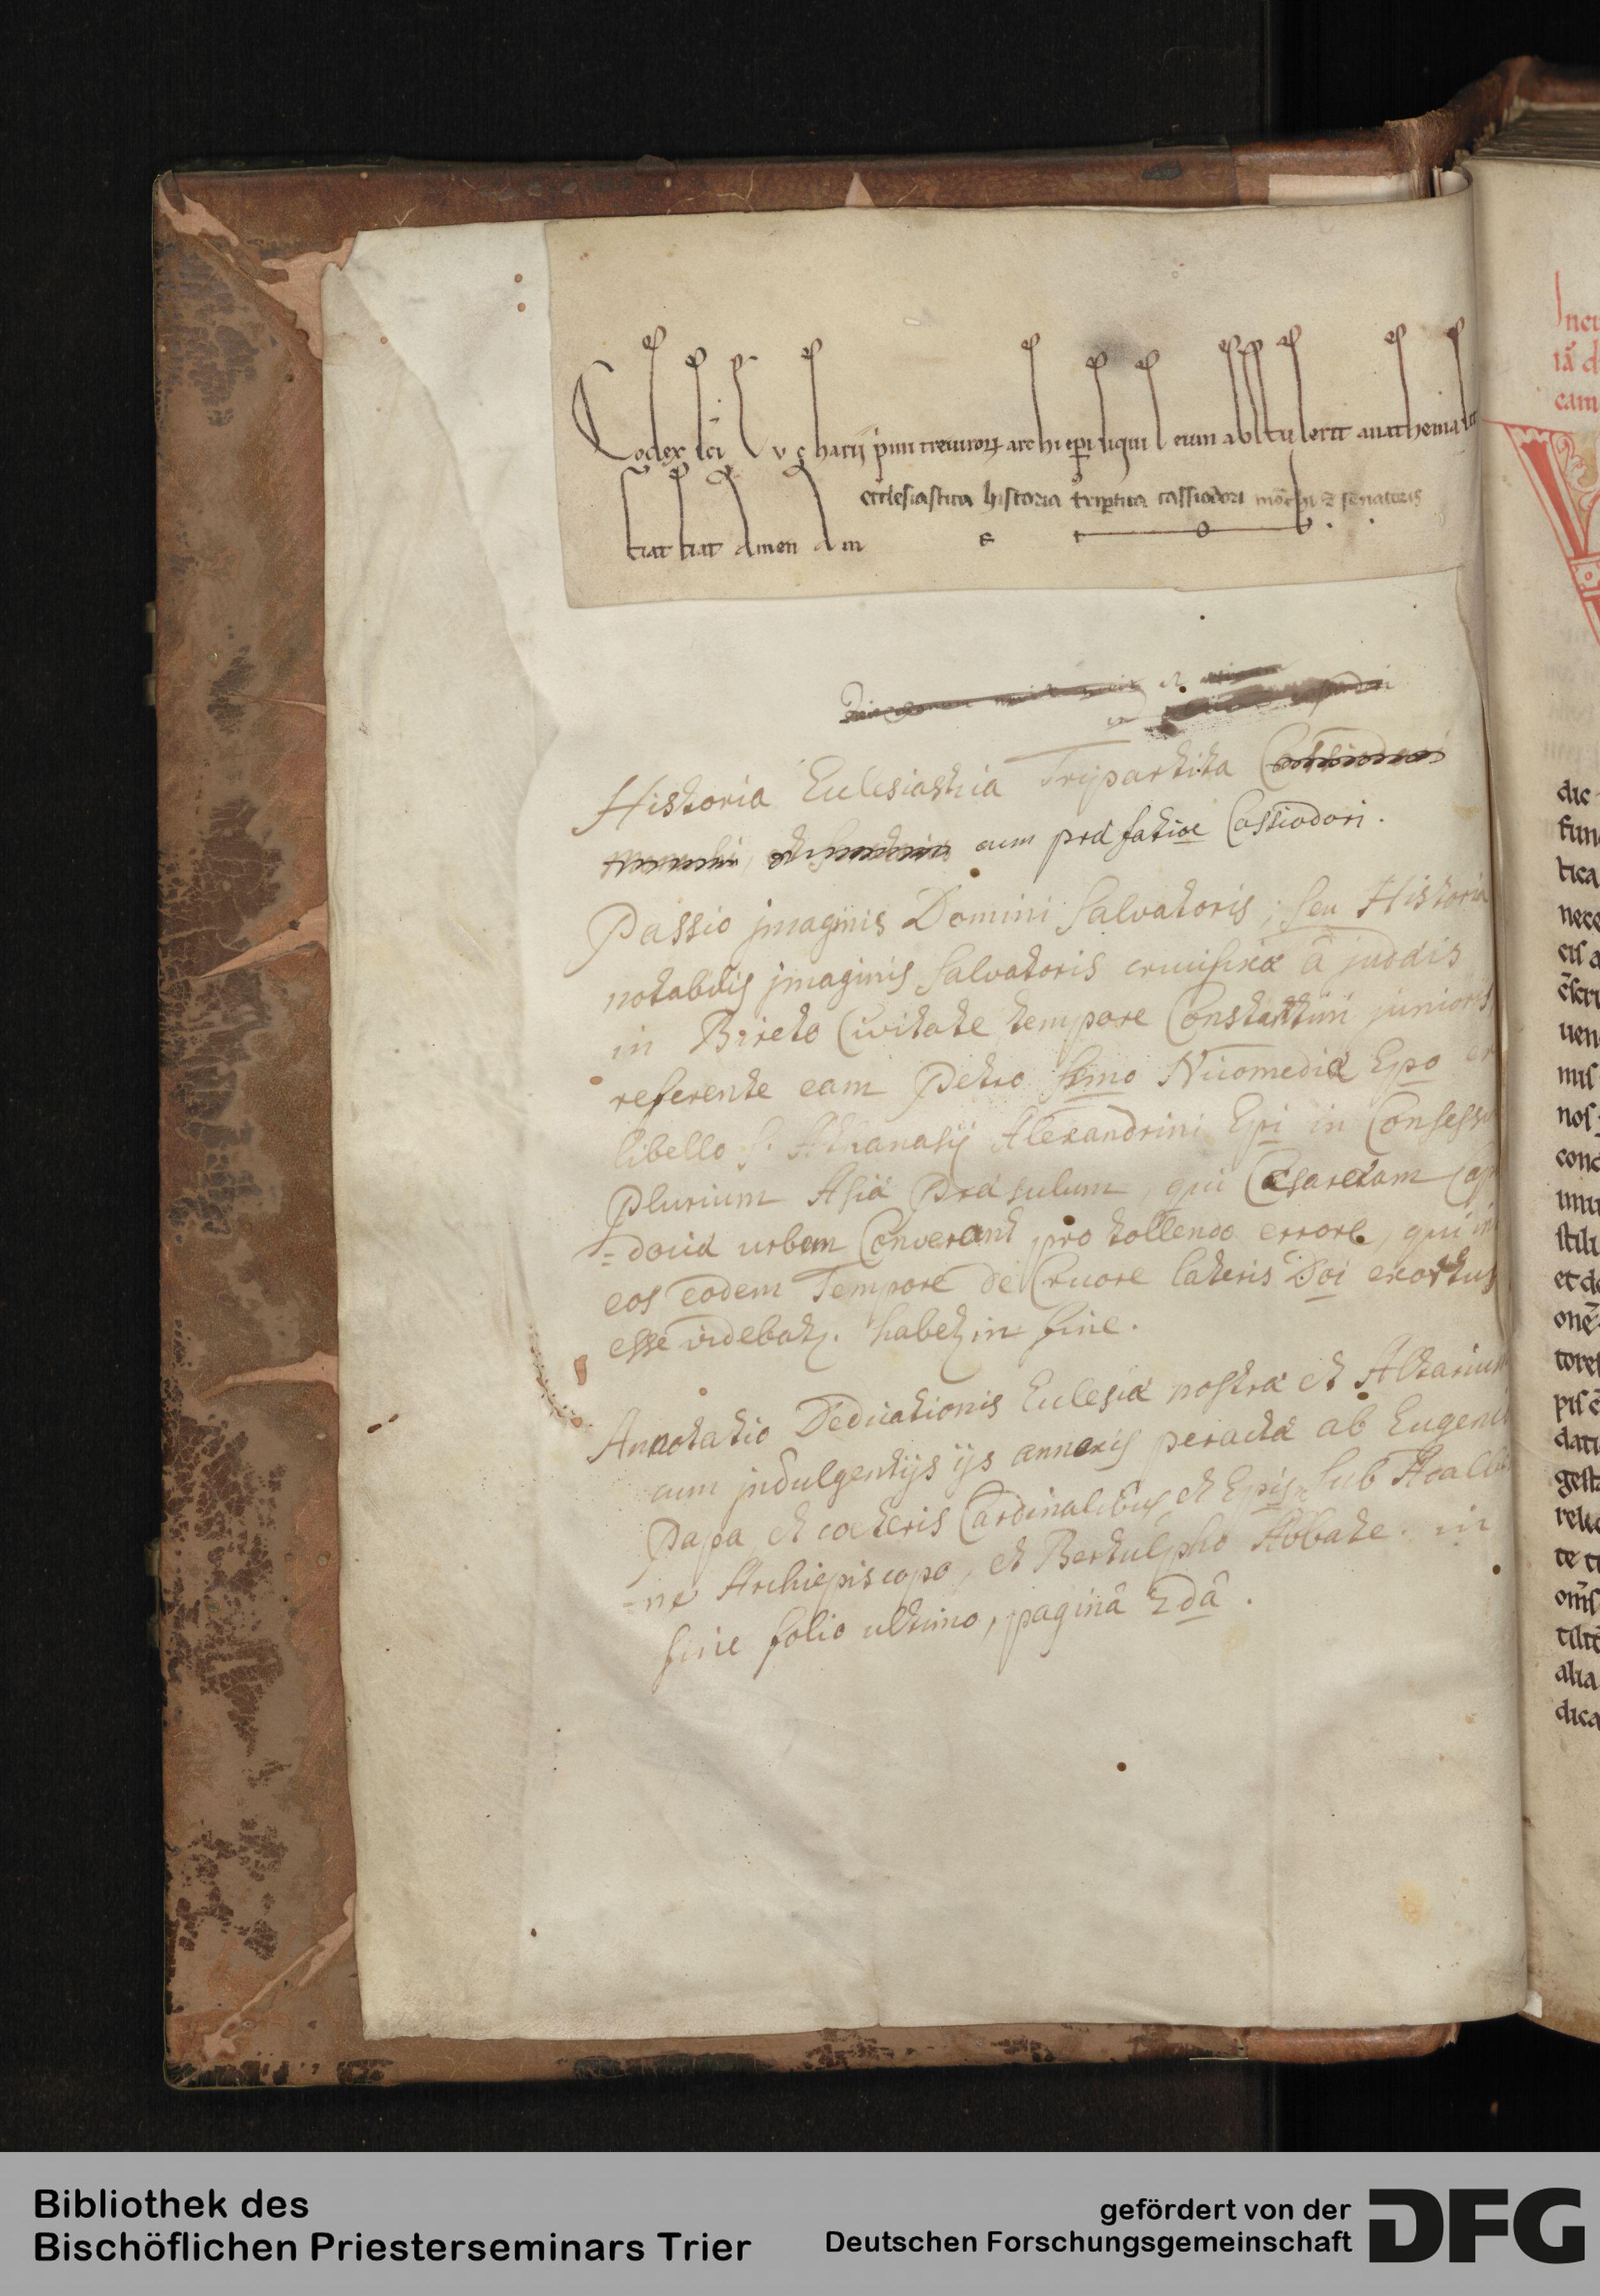 Codex sci Eucharii primi treuirorum archiepi siquis eum abstulerit anathema sit
fiat fiat amen am
ecclesiastica historia tripertita cassiodori monachi & senatoris
Historia Ecclesiastica Tripartita
cum præfatioe Cassiodori.
Passio jmaginis Domini Salvatoris, seu Historia
notabilis jmaginis Salvatoris crucifixæ â judæis
in Bireto Civitate tempore Constantini junioris
referente eam Petro Ssmo Nicomediæ Epo ex
libello S. Athanasij Alexandrini Epi in Consessu
Plurium Asiæ Præsulum, qui Cæsaream Cap
=dociæ urbem Convenerant pro tollendo errore, qui in
eos eodem Tempore de Cruore lateris Doi exortus
esse videbatr. habetr in fine.
Annotatio Dedicationis Ecclesiæ nostræ et Altarium
cum jndulgentijs ijs annexis peractæ ab Eugenio
Papa et cæteris Cardinalibus et Epis sub Adalbe
=ne Archiepiscopo, et Bertulpho Abbate. in
fine folio ultimo, paginâ 2dâ.
Incı
iā d
cam
dic
fun
tica
nece
eis a
uen
mis
nos
conc
stilı
et de
onē
tores
pis c
datı
gesta
te tı
alia
dica
Bibliothek des
Bischöflichen Priesterseminars Trier
gefördert von der
Deutschen Forschungsgemeinschaft
DFG